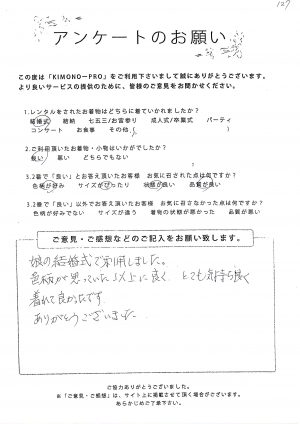 127
アンケートのお願い
この度は「KIMONO-PRO」をご利用下さいまして誠にありがとうございます。
より良いサービスの提供のために、皆様のご意見をお聞かせください。
1.レンタルをされたお着物はどちらに着ていかれましたか?
結婚式 結納 七五三/お宮参り 成人式/卒業式 パーティ
コンサート お食事 その他( )
2.ご利用頂いたお着物・小物はいかがでしたか?
良い 悪い どちらでもない
3.2番で「良い」とお答え頂いたお客様 お気に召された点は何ですか?
色柄が好み サイズがぴったり 状態が良い 品質が良い
3.2番で「良い」以外でお答え頂いたお客様 お気に召さなかった点は何ですか?
色柄が好みでない サイズが違う 着物の状態が悪かった 品質が悪い
ご意見・ご感想などのご記入をお願い致します。
娘の結婚式で利用しました。
色柄が思っていた以上に良く、とても気持ち良く
着れて良かったです。
ありがとうございました。
ご協力ありがとうございました。
※「ご意見・ご感想」は、サイト上に掲載させて頂く場合がございます。
あらかじめご了承下さい。